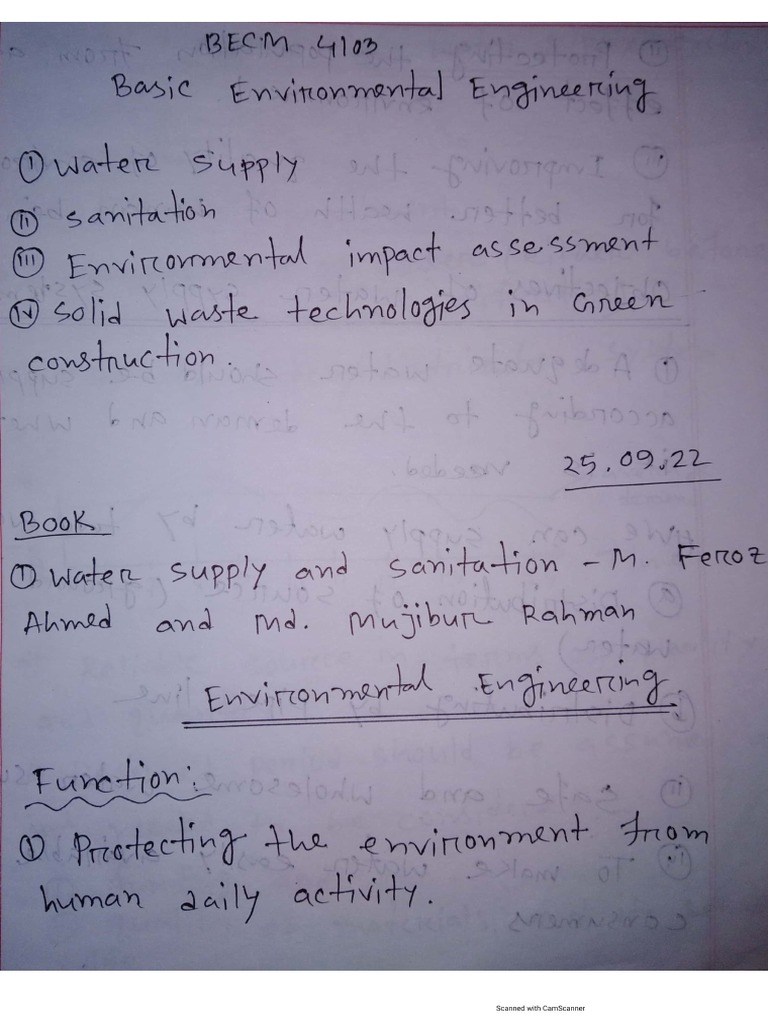 BECM 4103
Basic Environmental Engineering
(i) Water supply
(ii) Sanitation
(iii) Environmental impact assessment
(iv) Solid waste technologies in Green
construction.
25.09.22
Book
(i) Water supply and sanitation - M. Feroz
Ahmed and Md. Mujibur Rahman
Environmental Engineering
Function:
(i) Protecting the environment from
human daily activity.
Scanned with CamScanner